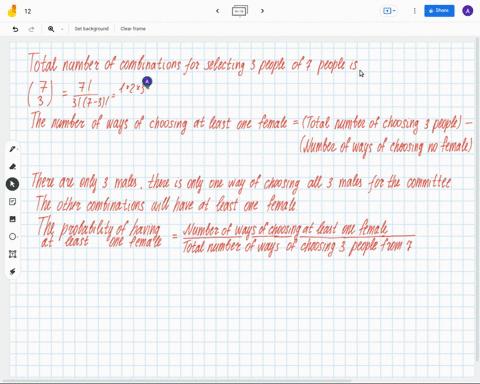 12
Share
A
Set background
Clear frame
Total number of combinations for selecting 3 people of 7 people is
(7 3) = 7! / 3!(7-3)! = 1*2*3*
A
The number of ways of choosing at least one female = (Total number of choosing 3 people) –
(Number of ways of choosing no female)
There are only 3 males, there is only one way of choosing all 3 males for the committee
The other combinations will have at least one female
The probability of having at least one female = Number of ways of choosing at least one female / Total number of ways of choosing 3 people from 7